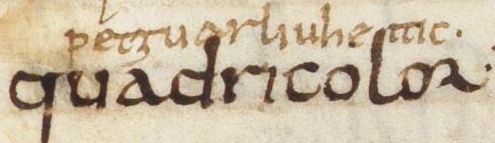 petguarliuhe ttic.
quadricolor.